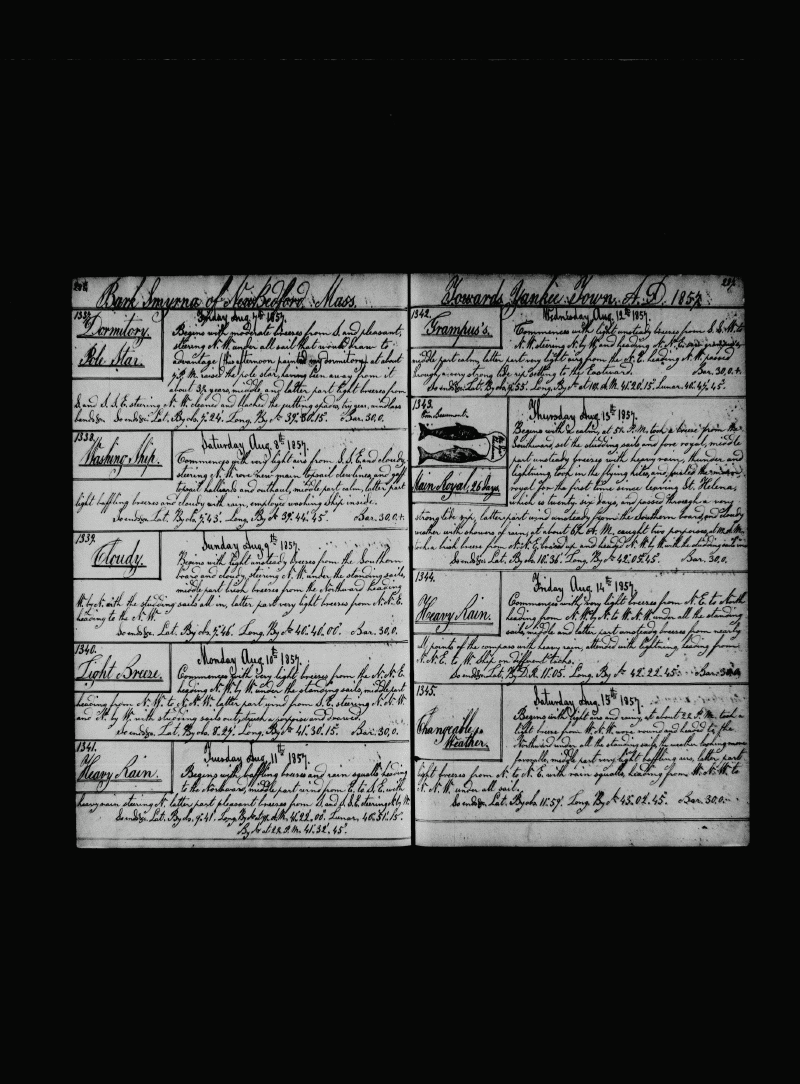 Bark Smyrna of New Bedford Mass.
1337.
Dormitory.
Pole Star.
Friday Aug. 7th 1857.
Begins with moderate breezes from S. and pleasant,
steering N.W. under all sail that would draw to
advantage (this afternoon painted my dormitory) at about
7½ P.M. raised the pole star, having been away from it
about 3½ years, middle and latter part light breezes from
S. and S.S.E. steering N.W. cleaned and blacked the
So ends. Lat. By obs. 7.24. Long. By Ar 39.80.15. Bar. 30,0.
1338.
Washing Ship.
Saturday Aug. 8th 1857.
Commences with very light airs from S.S.E. and cloudy
steering N.W. rove new main topsail clewlines and gaff
topsail halliards and outhaul, middle part calm, latter part
light baffling breezes and cloudy with rain, employed washing ship inside.
So ends. Lat. By obs. 7.43. Long. By Ar 39.44.45. Bar. 30,0.+
1339.
Cloudy.
Sunday Aug. 9th 1857.
Begins with light unsteady breezes from the Southern
board and cloudy, steering N.W. under the standing sails,
middle part brisk breezes from the Northward heading
W. by N. with the studding sails all in, latter part very light breezes from N.N.E.
heading to the N.W.
So ends. Lat. By obs. 7.46. Long. By Ar 40.40.00. Bar. 30,0.
1340.
Light Breeze.
Monday Aug. 10th 1857.
Commences with very light breezes from the N.N.E.
heading N.W. by W. under the standing sails, middle part
heading from N.W. to N.N.W. latter part wind from S.E. steering N.N.W.
and N. by W. with studding sails out, struck a porpoise and drawed.
So ends. Lat. By obs. 8.29. Long. By Ar 41.30.15. Bar. 30,0.
1341.
Heavy Rain.
Tuesday Aug. 11th 1857.
Begins with baffling breezes and rain squalls heading
to the Northward, middle part wind from E. to S.E. with
heavy rain steering N. latter part pleasant breezes from S. and S.S.E. steering N. by W.
So ends. Lat. By obs. 9.41. Long. By Ar at 9 A.M. 41.22.00. Lunar, 40.51.15.
By Ar at 2½ P.M. 41.32.45.
Towards Yankee Town. A.D. 1857.
1342.
Grampus's.
Wednesday Aug. 12th 1857.
Commences with light unsteady breezes from S.S.W. to
N.W. steering N. by W. and heading
middle part calm, latter part very light airs from the N.E. heading N.W. passed
through a very strong tide rip setting to the Eastward. Bar. 30,0.+
So ends. Lat. By obs. 9.55. Long. By Ar at 10 A.M. 41.20.15. Lunar, 40.47.45.
1343.
Main Royal, 26 days
Thursday Aug. 13th 1857.
Begins with a calm, at 5½ P.M. took a breeze from the
Southward, set the studding sails and fore royal, middle
part unsteady breezes with heavy rain, thunder and
lightning, took in the flying kites, and furled the main
royal for the first time since leaving St. Helena,
which is twenty six days, and passed through a very
strong tide rip, latter part wind unsteady from the Southern board, and cloudy
weather with showers of rain, at about 6½ A.M. caught two porpoises, at
took a brisk breeze from N.N.E. braced up and headed N.W. by W. with the studding sails in
So ends. Lat. By obs. 10.36. Long. By Ar 42.05.45. Bar. 30,0.
1344.
Heavy Rain.
Friday Aug. 14th 1857.
Commences with very light breezes from N.E. to North
heading from N.W. by N. to W.N.W. under all the standing
sails, middle and latter part unsteady breezes from nearly
all points of the compass with heavy rain, attended with lightning heading from
N.N.E. to W. Ship on different tacks.
So ends. Lat. By D.R. 11.05. Long. By Ar 42.22.45. Bar. 30,0.
1345.
Changeable Weather.
Saturday Aug. 15th 1857.
Begins with light airs and rainy, at about 2½ P.M. took a
light breeze from W.N.W. wore round and headed to the
Northward under all the standing sails, weather looking more
favorable, middle part very light baffling airs, latter part
light breezes from N. to N.E. with rain squalls, heading from W.N.W. to
N.N.W. under all sail.
So ends. Lat. By obs. 11.59. Long. By Ar 43.02.45. Bar. 30,0.